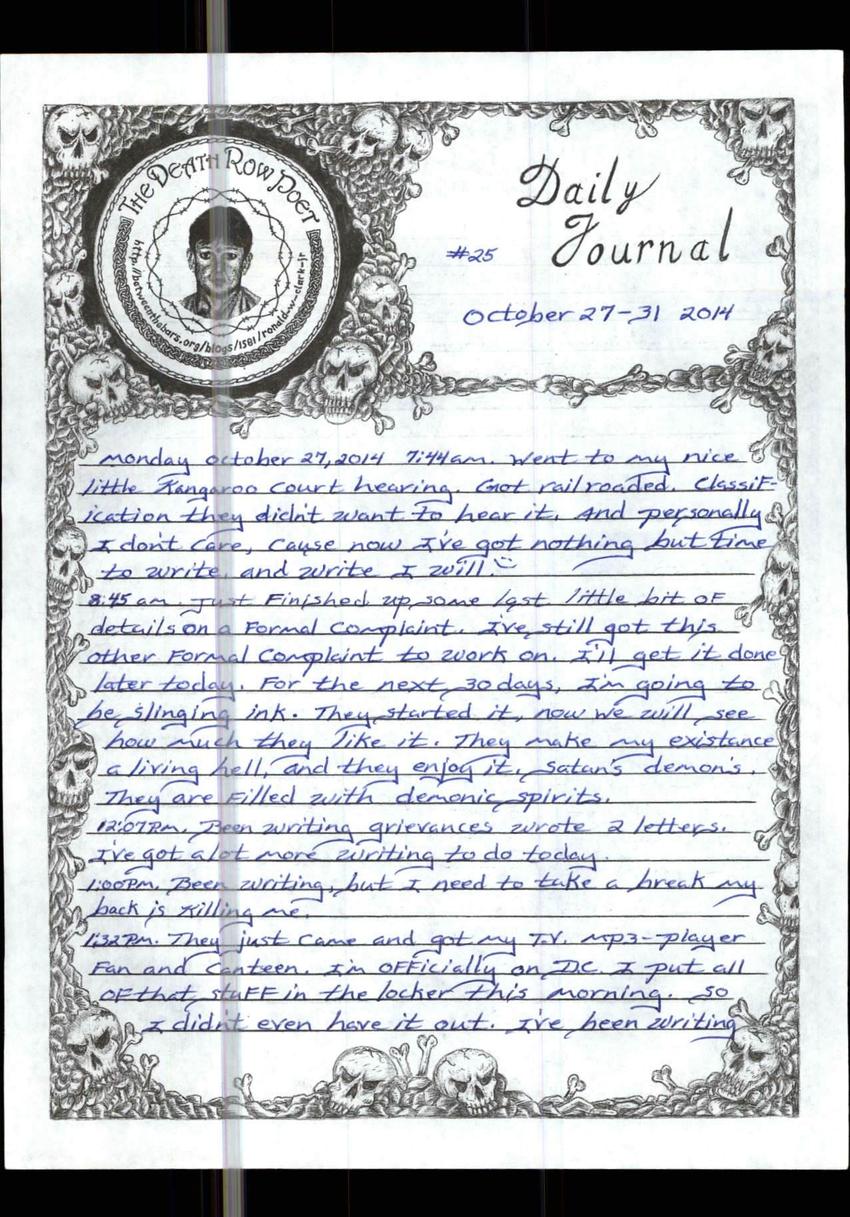 THE DEATH ROW POET
http://betweenthebars.org/blogs/1581/ronald-w-clark-jr
Daily
Journal
#25
October 27-31 2014
Monday October 27, 2014 7:44am. Went to my nice
little Kangaroo Court hearing. Got railroaded. Classif-
ication they didn't want to hear it. And personally
I don't care, cause now I've got nothing but time
to write, and write I will!
8:45am. Just Finished up some last little bit of
details on a Formal Complaint. I've still got this
other Formal Complaint to work on. I'll get it done
later today. For the next 30 days, I'm going to
be slinging ink. They started it, now we will see
how much they like it. They make my existance
a living hell, and they enjoy it. Satan's demon's.
They are Filled with demonic spirits.
12:07pm. Been writing grievances wrote 2 letters.
I've got alot more writing to do today.
1:00pm, Been writing, but I need to take a break my
back is Killing me.
1:32pm. They just came and got my T.V. mp3-player
Fan and Canteen. I'm officially on D.C. I put all
of that stuff in the locker this morning. So
I didn't even have it out. I've been writing